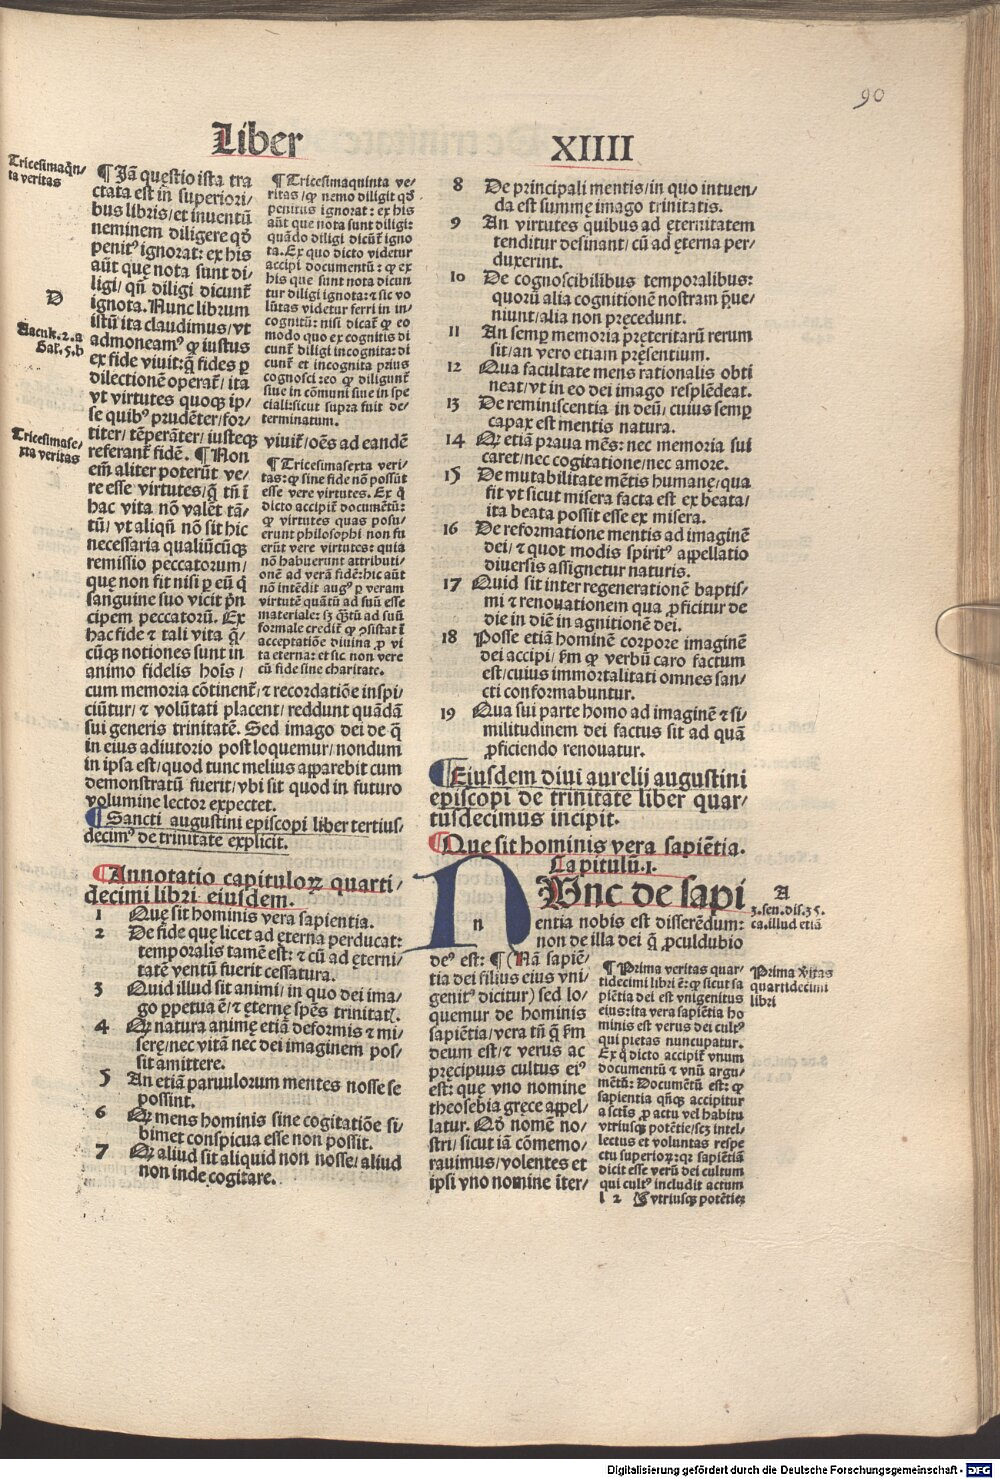 90
Liber
XIIII
Tricesimaq̃n/
ta veritas
¶ Jã quęstio ista tra
ctata est in superiori/
bus libris/et inuentũ
neminem diligere qð
penitꝰ ignorat: ex his
aũt quę nota sunt di/
ligi/ qñ diligi dicunt̃
ignota. Nunc librum
istũ ita claudimus/vt
admoneamꝰ ꝙ iustus
ex fide viuit:q̃ fides ꝑ
dilectionẽ operat̃/ita
vt virtutes quoqꝫ ip/
se quibꝰ prudẽter/for/
titer/ tẽperãter/ iusteqꝫ viuit̃/oẽs ad eandẽ
referant̃ fidẽ. ¶ Non
em̃ aliter poterũt ve/
re esse virtutes/q̃ tñ ĩ
hac vita nõ valẽt tã/
tũ/ vt aliqñ nõ sit hic
necessaria qualiũcũqꝫ
remissio peccatorum/
quę non fit nisi ꝑ eũ q̃
sanguine suo vicit pñ
cipem peccatorũ. Ex
hac fide ⁊ tali vita q̃/
cũqꝫ notiones sunt in
animo fidelis hoĩs/
cum memoria cõtinent̃/⁊ recordatiõe inspi/
ciũtur/ ⁊ volũtati placent/ reddunt quãdã
sui generis trinitatẽ. Sed imago dei de q̃
in eius adiutorio post loquemur/nondum
in ipsa est/quod tunc melius apparebit cum
demonstratũ fuerit/vbi sit quod in futuro
volumine lector expectet.
D
Bacuk.2.a
Gal.5.b
Tricesimase/
xta veritas
¶ Tricesimaquinta ve/
ritas/ꝙ nemo diligit qð
penitus ignorat: ex his
aũt que nota sunt diligi:
quãdo diligi dicũt̃ igno
ta. Ex quo dicto videtur
accipi documentũ: ꝙ ex
his que sunt nota dicun
tur diligi ignota:⁊ sic vo
lũtas videtur ferri in in/
cognitũ: nisi dicat̃ ꝙ eo
modo quo ex cognitis di
cunt̃ diligi incognita: di
cunt̃ et incognita prius
cognosci:eo ꝙ diligunt̃
siue in cõmuni siue in spe
ciali:sicut supra fuit de/
terminatum.
¶ Tricesimasexta veri/
tas:ꝙ sine fide nõ possũt
esse vere virtutes. Ex q̃
dicto accipit̃ documẽtũ:
ꝙ virtutes quas posu/
erunt philosophi non fu
erũt vere virtutes: quia
nõ habuerunt attributi/
onẽ ad verã fidẽ:hic aũt
nõ intẽdit augꝰ ꝑ veram
virtutẽ quãtũ ad suũ esse
materiale: sꝫ q̃tũ ad suũ
formale credit̃ ꝙ ↄ̃sistat ĩ
acceptatiõe diuina ꝓ vi
ta eterna: et sic non vere
cũ fide sine charitate.
¶ Sancti augustini episcopi liber tertius/
decimꝰ de trinitate explicit.
¶ Annotatio capituloꝝ quarti/
decimi libri eiusdem.
1 Quę sit hominis vera sapientia.
2 De fide quę licet ad ęterna perducat:
temporalis tamẽ est: ⁊ cũ ad ęterni/
tatẽ ventũ fuerit cessatura.
3 Quid illud sit animi/ in quo dei ima/
go ꝑpetua ẽ/⁊ ęternę spẽs trinitat̃.
4 Qꝫ natura animę etiã deformis ⁊ mi/
serę/nec vitã nec dei imaginem pos/
sit amittere.
5 An etiã paruulorum mentes nosse se
possint.
6 Qꝫ mens hominis sine cogitatiõe si/
bimet conspicua esse non possit.
7 Qꝫ aliud sit aliquid non nosse/aliud
non inde cogitare.
8 De principali mentis/in quo intuen/
da est summę imago trinitatis.
9 An virtutes quibus ad ęternitatem
tenditur desinant/ cũ ad ęterna per/
duxerint.
10 De cognoscibilibus temporalibus:
quorũ alia cognitionẽ nostram p̃ue/
niunt/alia non pręcedunt.
11 An semꝑ memoria pręteritarũ rerum
sit/an vero etiam pręsentium.
12 Qua facultate mens rationalis obti
neat/vt in eo dei imago resplẽdeat.
13 De reminiscentia in deũ/ cuius semꝑ
capax est mentis natura.
14 Qꝫ etiã praua mẽs: nec memoria sui
caret/nec cogitatione/nec amore.
15 De mutabilitate mẽtis humanę/qua
fit vt sicut misera facta est ex beata/
ita beata possit esse ex misera.
16 De reformatione mentis ad imaginẽ
dei/ ⁊ quot modis spiritꝰ appellatio
diuersis assignetur naturis.
17 Quid sit inter regenerationẽ baptis/
mi ⁊ renouationem qua ꝓficitur de
die in diẽ in agnitionẽ dei.
18 Posse etiã hominẽ corpore imaginẽ
dei accipi/ s̃m ꝙ verbũ caro factum
est/cuius immortalitati omnes san/
cti conformabuntur.
19 Qua sui parte homo ad imaginẽ ⁊ si/
militudinem dei factus sit ad quã
ꝓficiendo renouatur.
¶ Eiusdem diui aurelij augustini
episcopi de trinitate liber quar/
tusdecimus incipit.
¶ Que sit hominis vera sapiẽtia.
Capitulũ.1.
n
NVnc de sapi
entia nobis est disserẽdum:
non de illa dei q̃ ꝓculdubio
deꝰ est: ¶ (Nã sapiẽ/
tia dei filius eius vni/
genitꝰ dicitur) sed lo/
quemur de hominis
sapiẽtia/ vera tñ q̃ s̃m
deum est/⁊ verus ac
pręcipuus cultus eiꝰ
est: quę vno nomine
theosebia gręce appel/
latur. Qð nomẽ no/
stri/sicut iã cõmemo/
rauimus/volentes et
ipsi vno nomine ĩter/
¶ Prima veritas quar/
tidecimi libri ẽ:ꝙ sicut sa
piẽtia dei est vnigenitus
eius:ita vera sapiẽtia ho
minis est verus dei cultꝰ
qui pietas nuncupatur.
Ex q̃ dicto accipit̃ vnum
documẽtũ ⁊ vnũ argu/
mẽtũ: Documẽtũ est: ꝙ
sapientia qñqꝫ accipitur
a sctĩs ꝓ actu vel habitu
vtriusqꝫ potẽtie/scꝫ intel/
lectus et voluntas respe
ctu superioꝝ:qꝛ sapiẽtiã
dicit esse verũ dei cultum
qui cultꝰ includit actum
l 2 vtriusqꝫ potẽtieꝫ
A
3.sen.dis.35.
ca.illud etiã
Prima v̾itas
quartidecimi
libri
Digitalisierung gefördert durch die Deutsche Forschungsgemeinschaft - DFG